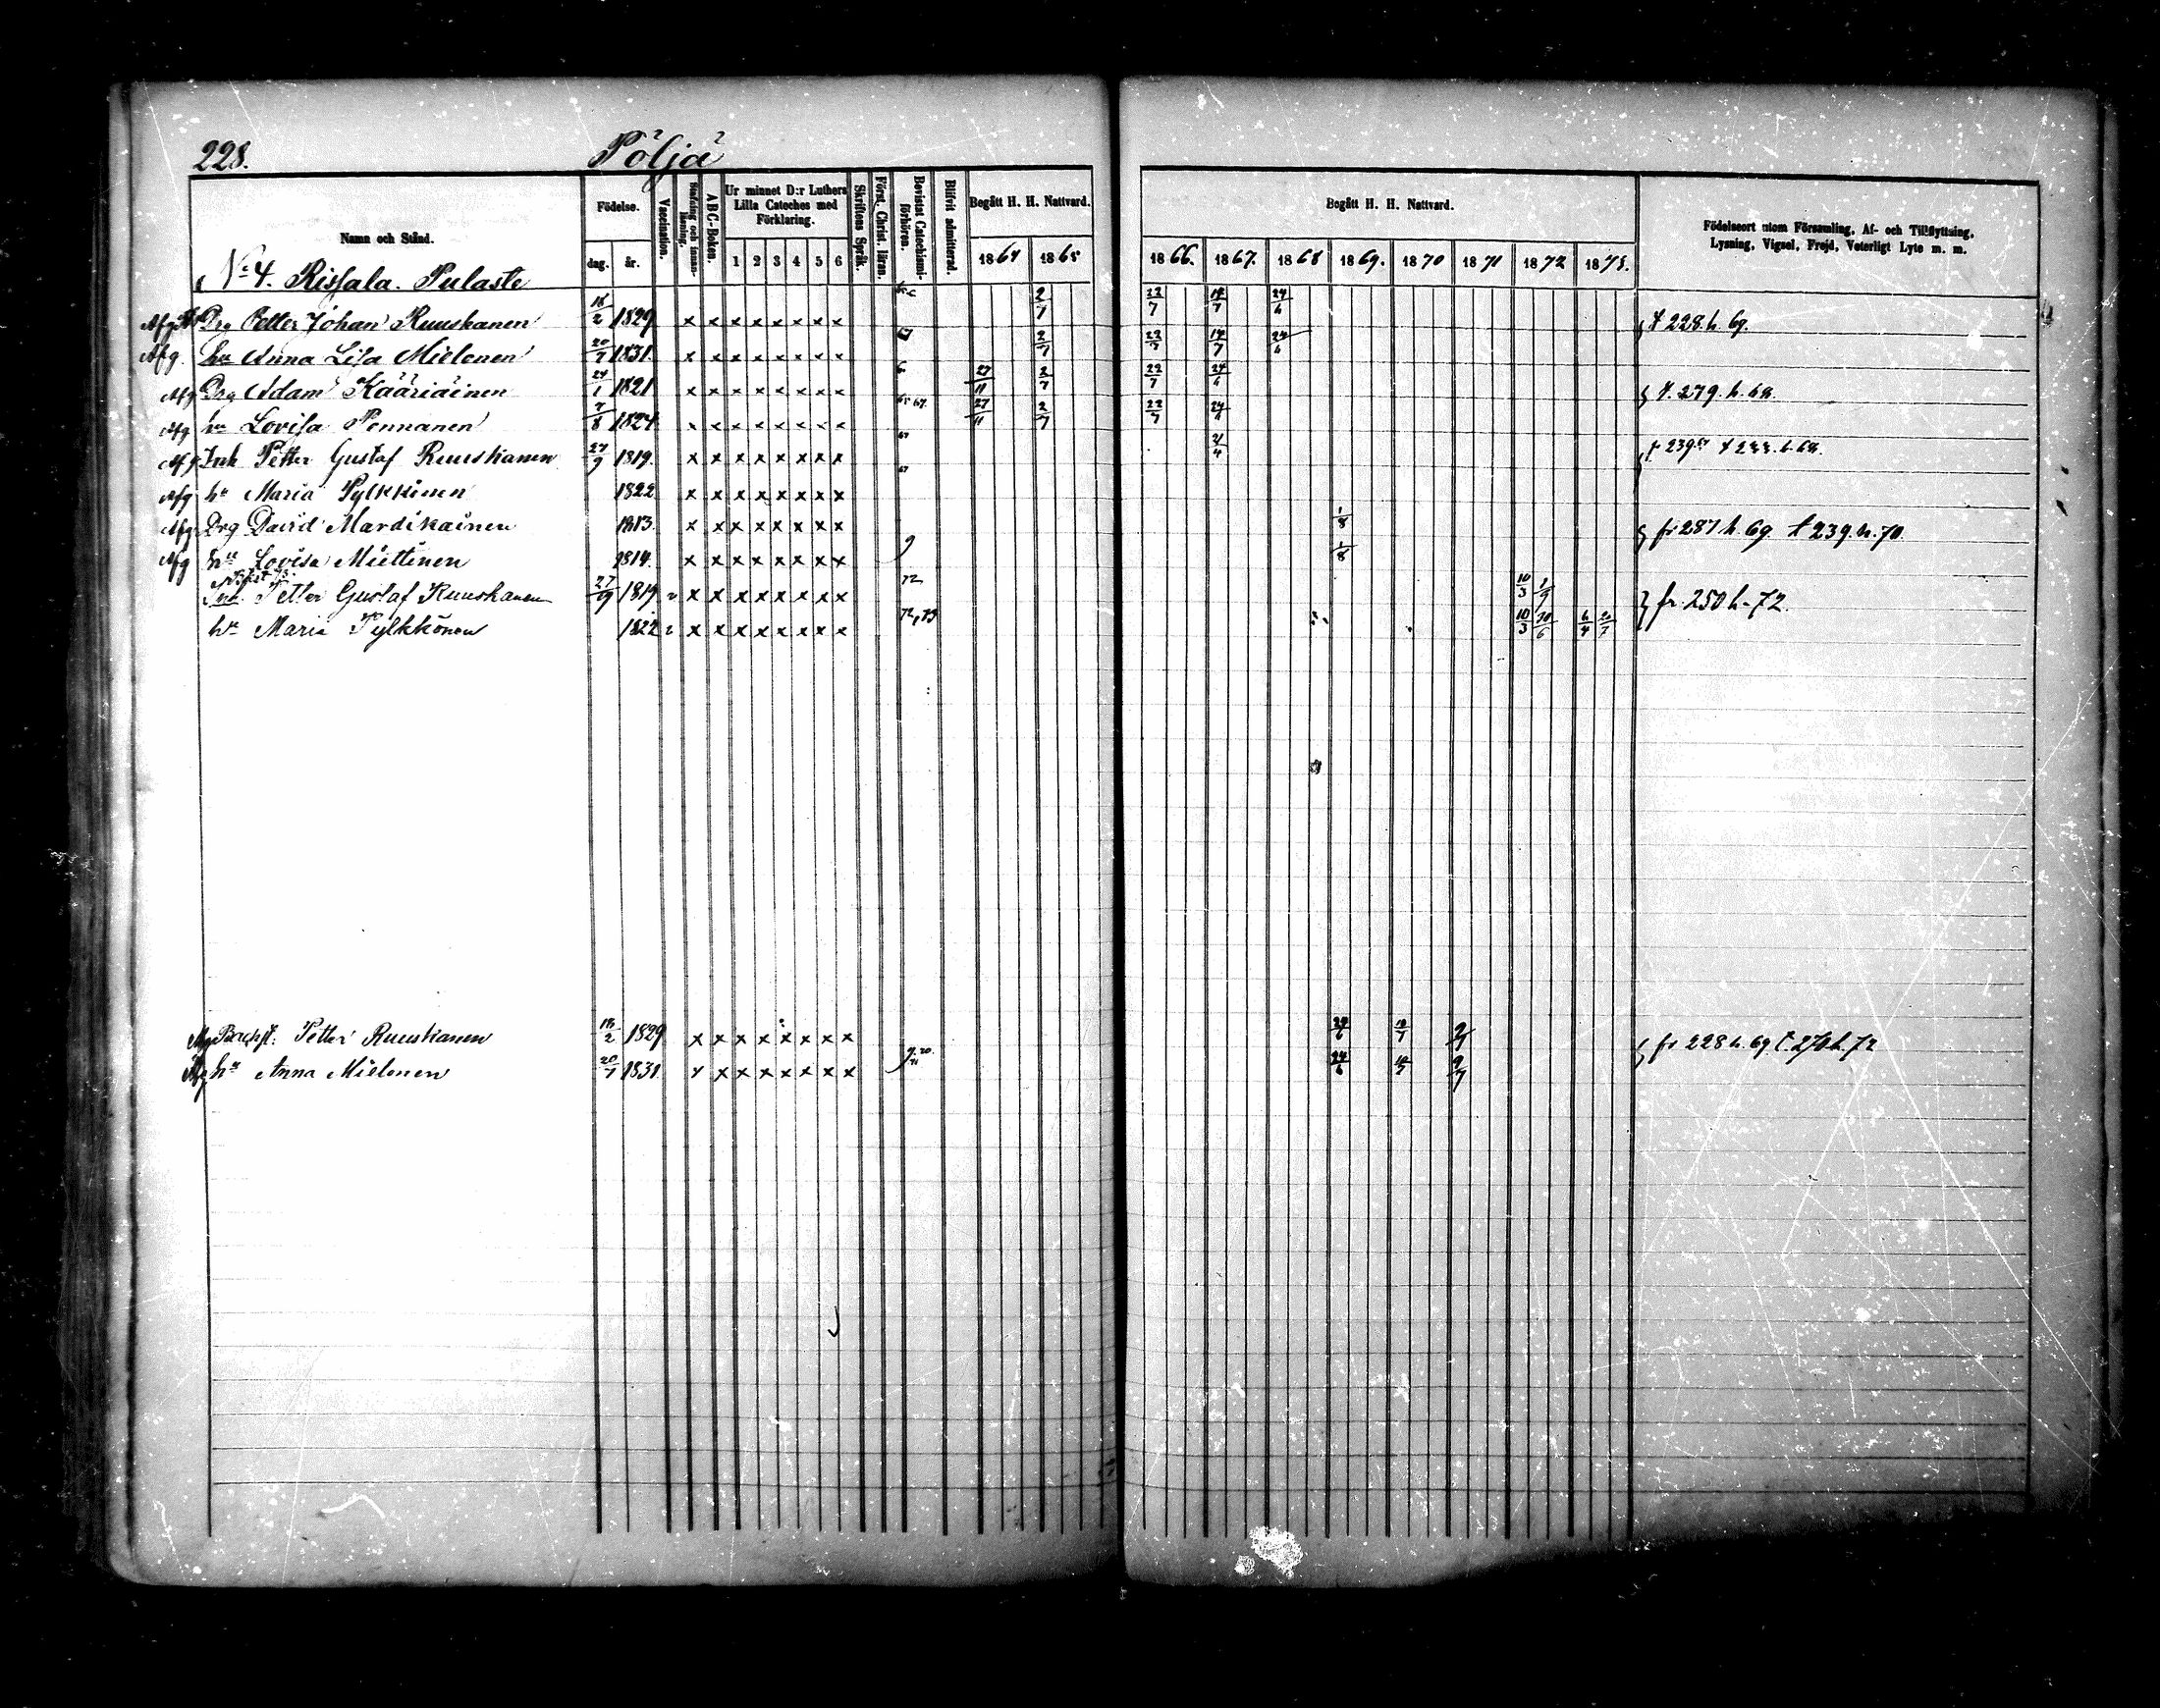 228. Pöljä
Namn och Stånd. Födelse. dag. år. Vaccination. Stafning och innanläsning. A B C-Boken. Ur minnet D:r Luthers Lilla Cateches med Förklaring. 1 2 3 4 5 6 Skriftens Språk. Först. Christ. läran. Bevistat Catechismiförhören. Blifvit admitterad. Begått H. H. Nattvard. 1864 1865 Begått H. H. Nattvard. 1866. 1867. 1868 1869. 1870 1871 1872 1873. Födelseort utom Församling, Af- och Tillflyttning, Lysning, Vigsel, Frejd, Veterligt Lyte m. m.
No 4. Rissala. Pulaste
Afg Drg Petter Johan Ruuskanen 18/2 1829 x x x x x x x x 2/7 22/7 14/7 24/6 t 228. h. 69.
Afg. hu Anna Lisa Mielonen 20/7 1831. x x x x x x x x 67 2/7 22/7 14/7 24/6
Afg Drg Adam Kääriäinen 24/1 1821 x x x x x x x x 27/11 2/7 22/7 24/6 t. 279. h. 68.
Afg hu Lovisa Pennanen 7/8 1824 x x x x x x x x 65 67. 27/11 2/7 22/7 24/6
Afg Inh Petter Gustaf Ruuskanen 27/9 1819. x x x x x x x x 67 21/4 fr 239 67 t 233. h. 68.
Afg hu Maria Pylkkönen 1822 x x x x x x x x 67
Afg Drg David Mardikainen 1813. x x x x x x x x 1/8 fr 287 h. 69 t 239. h. 70.
Afg hu Lovisa Miettinen 1814. x x x x x x x x 1/8
Inh. Petter Gustaf Ruuskanen 27/9 1819 x x x x x x x x 72 10/3 1/9 fr. 250 h. 72.
hu Maria Pylkkönen 1822 x x x x x x x x 72, 73 10/3 30/6 6/4 20/7
Afg Backst: Petter Ruuskanen 18/2 1829 x x x x x x x x 24/6 10/7 2/7 fr 228 h. 69 t. 270 h. 72
Afg hu Anna Mielonen 20/7 1831 x x x x x x x x 24/6 10/7 9/7